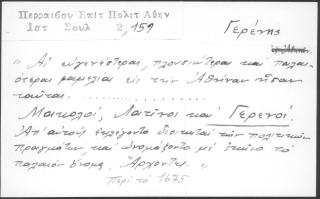 Περραιβου Επίτ Πολιτ Αθην
Ιστ Σουλ 2,159
Γερένης
"Αἱ εὐγενέστεραι, πλουσιώτεραι καὶ παλαι-
ότεραι φαμελίαι εἰς τὴν Ἀθήναν ἦσαν
τοῦται. . . . . . . . . . . . .
Μπεκολοί, Λατῖνοι καὶ Γερενοί.
Ἀπ' αὐτοὺς ἐκλέγοντο διοικηταὶ τῶν πολιτικῶν
πραγμάτων, καὶ ὠνομάζοντο μὲ ἐκεῖνο τὸ
παλαιὸν ὄνομα, Ἄρχοντες."
Περὶ τὸ 1675